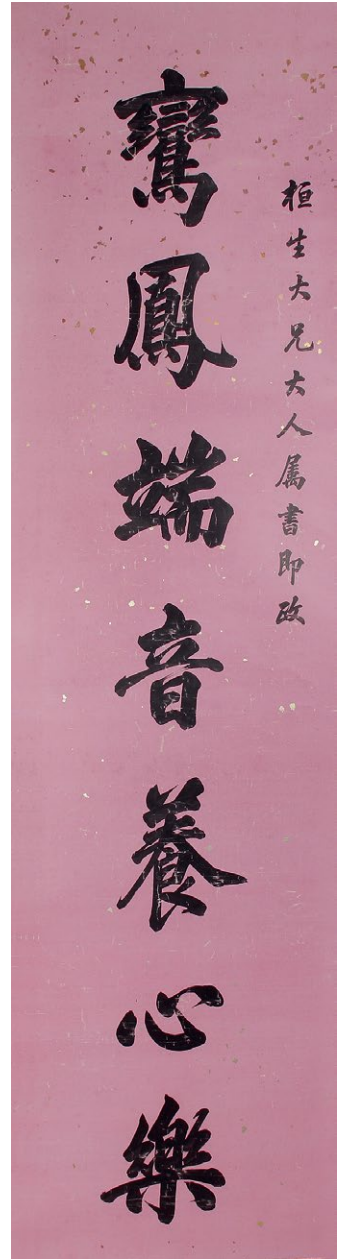 桓生大兄大人属書即政
鸞鳳端音養心樂